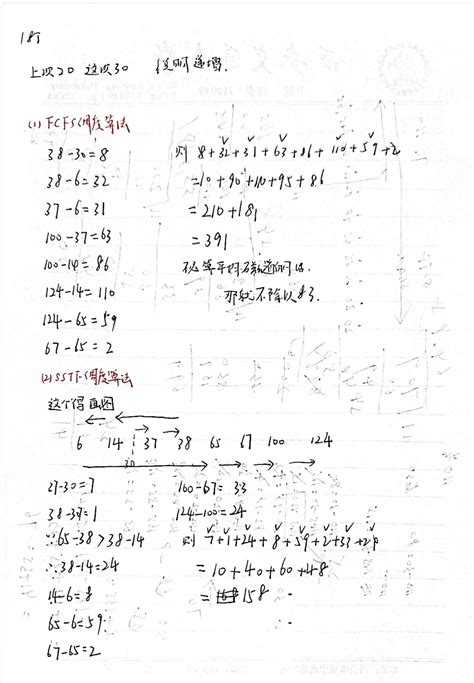 上次20 这次30 说明递增.
(1) FCFS调度算法
38-30=8
则 8+32+31+63+86+110+59+2
38-6=32
=10+90+110+95+86
37-6=31
=210+181
100-37=63
=391
100-14=86
124-14=110
那就不除以8了.
124-65=59
67-65=2
(2) SSTF调度算法
这个得画图
6 14 37 38 65 67 100 124
30
37-30=7
100-67=33
38-37=1
124-100=24
∵65-38>38-14
则 7+1+24+8+59+2+33+24
∴38-14=24
=10+40+60+48
14-6=8
=158
65-6=59
67-65=2